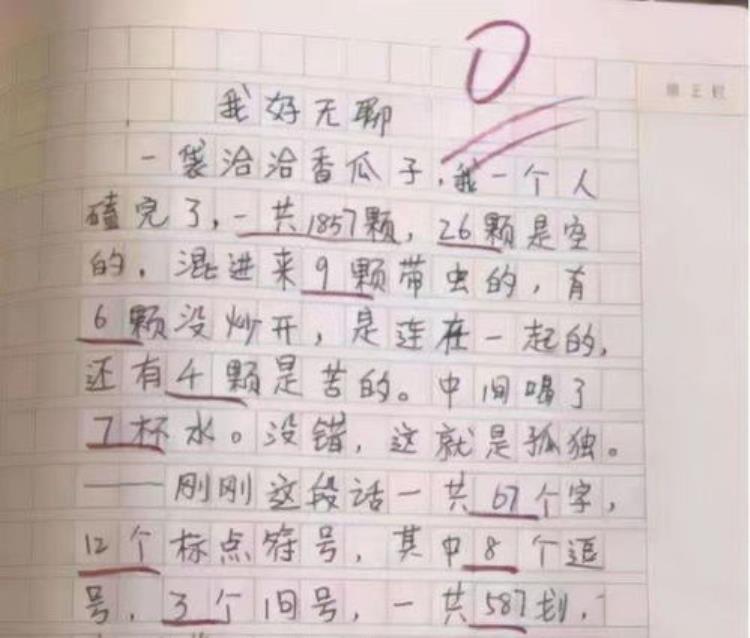 0
我好无聊
一袋洽洽香瓜子，我一个人
磕完了，一共1857颗，26颗是空
的，混进来9颗带虫的，有
6颗没炒开，是连在一起的，
还有4颗是苦的。中间喝了
7杯水。没错，这就是孤独。
——刚刚这段话一共67个字，
12个标点符号，其中8个逗
号，3个间号，一共587划，